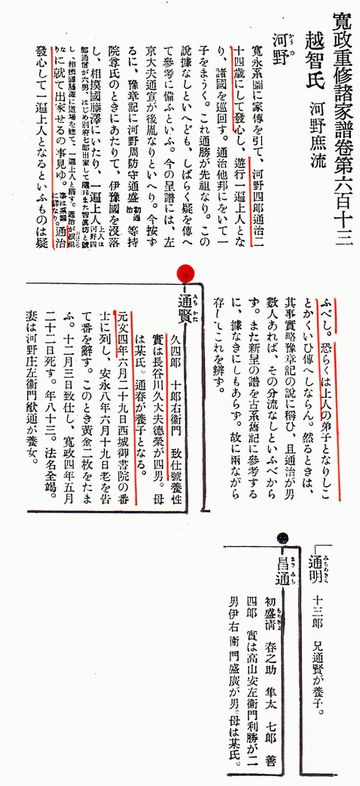 寛政重修諸家譜巻第六百十三
越智氏 河野庶流
河野
寛永系圖に家傳を引て、河野四郎通治二
十四歳にして發心し、遊行一遍上人とな
り、諸國を巡回す。通治他邦にをいて一
子をまうく。これ通勝が先祖なり。この
說據なしといへども、しばらく疑を傳へ
て參考に備ふといふ。今の呈譜には、左
京大夫通宣が後胤なりといへり。今按ず
るに、豫章記に河野周防守通盛 初通治 等持
院尊氏のときにあたりて、伊豫國を沒落
し、相摸國藤澤にいたり、一遍上人
に就て出家せるの事見ゆ。 通治
發心して一遍上人となるといふものは疑
ふべし。恐らくは上人の弟子となりしこ
とかくいひ傳へしならん。然るときは、
其事實略豫章記の說に稱ひ、且通治が男
數人あれば、その分流なしといふべから
ず。また新呈の譜を古系舊記に參考する
に、據なきにしもあらず。故に兩ながら
存してこれを辨ず。
通賢
久四郎 十郎右衞門 致仕號養性
實は長谷川久大夫德榮が四男。母
は某氏。通春が養子となる。
元文四年六月二十九日西城御書院の番
士に列し、安永八年六月十九日老を告
て番を辭す。このとき黃金二枚をたま
ふ。十二月三日致仕し、寬政四年五月
二十二日死す。年八十三。法名全翁。
妻は河野庄左衞門猷通が養女。
通明
十三郎 兄通賢が養子。
昌通
初盛淸 春之助 隼太 七郎 善
四郎 實は高山安左衞門利勝が二
男伊右衞門盛廣が男。母は某氏。